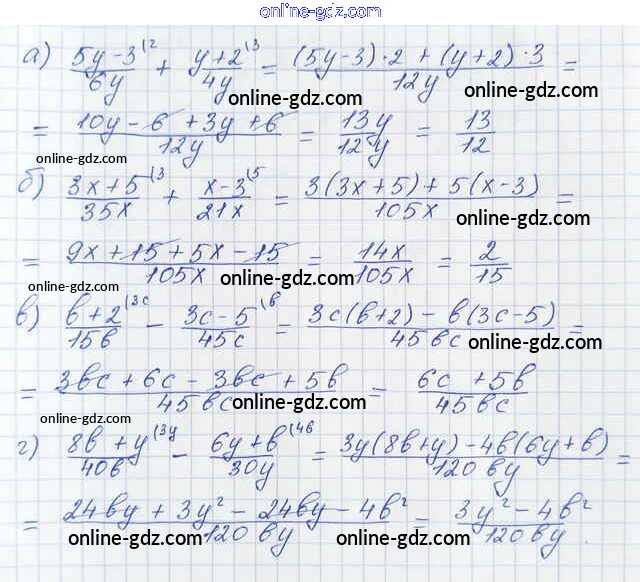 online-gdz.com
а) (5y-3)/6y (2 + (y+2)/4y (3 = ((5y-3)·2 + (y+2)·3)/12y =
online-gdz.com
= (10y - 6 + 3y + 6)/12y = 13y/12y = 13/12
online-gdz.com
online-gdz.com
б) (3x+5)/35x (3 + (x-3)/21x (5 = (3(3x+5)+5(x-3))/105x =
online-gdz.com
= (9x+15+5x-15)/105x = 14x/105x = 2/15
online-gdz.com
online-gdz.com
в) (b+2)/15b (3c - (3c-5)/45c (b = (3c(b+2) - b(3c-5))/45bc =
online-gdz.com
= (3bc + 6c - 3bc + 5b)/45bc = (6c + 5b)/45bc
online-gdz.com
online-gdz.com
г) (8b+y)/40b (3y - (6y+b)/30y (4b = (3y(8b+y) - 4b(6y+b))/120by =
= (24by + 3y² - 24by - 4b²)/120by = (3y² - 4b²)/120by.
online-gdz.com online-gdz.com